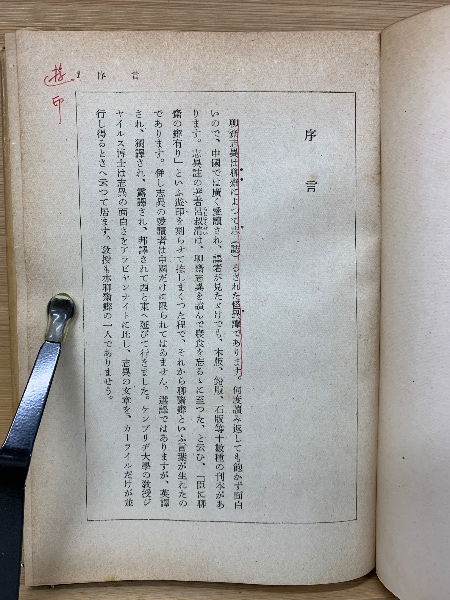 序言
遊印
序言
聊齋志異は聊齋によつて志(誌)るされた怪異譚であります。何度讀み返しても飽かず面白
いので、中國では廣く愛讀され、譯者が見ただけでも、木版、鉛版、石版等十數種の刊本があ
ります。志異註の著者呂叔淸は、聊齋志異を讀んで寢食を忘るゝに至つた、と云ひ、「臣に聊
齋の癖有り」といふ遊印を刻らせて捺しまくつた程で、それから聊齋癖といふ言葉が生れたの
であります。併し志異の愛讀者は中國だけに限られてはゐません。選譯ではありますが、英譯
され、獨譯され、露譯され、邦譯されて西と東へ延びて行きました。ケンブリヂ大學の敎授ジ
ヤイルス博士は志異の面白さをアラビヤンナイトに比し、志異の文章を、カーライルだけが並
行し得るとさへ云つて居ます。敎授も亦聊齋癖の一人でありませう。